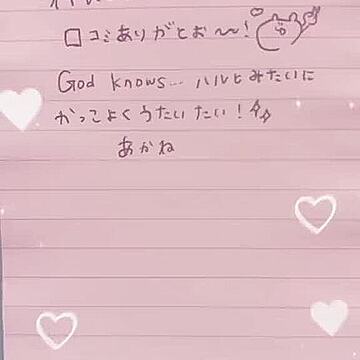 口コミありがとお〜〜!
God knows... ハルヒみたいに
かっこよくうたいたい!
あかね